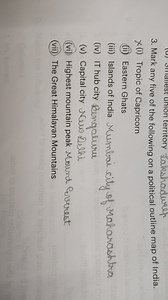 (v) Smallest union territory Lakshadweep
3. Mark any five of the following on a political outline map of India.
(i) Tropic of Capricorn
(ii) Eastern Ghats
(iii) Islands of India Mumbai city of Maharashtra
(iv) IT hub city Bengaluru
(v) Capital city New Delhi
(vi) Highest mountain peak Mount Everest
(vii) The Great Himalayan Mountains